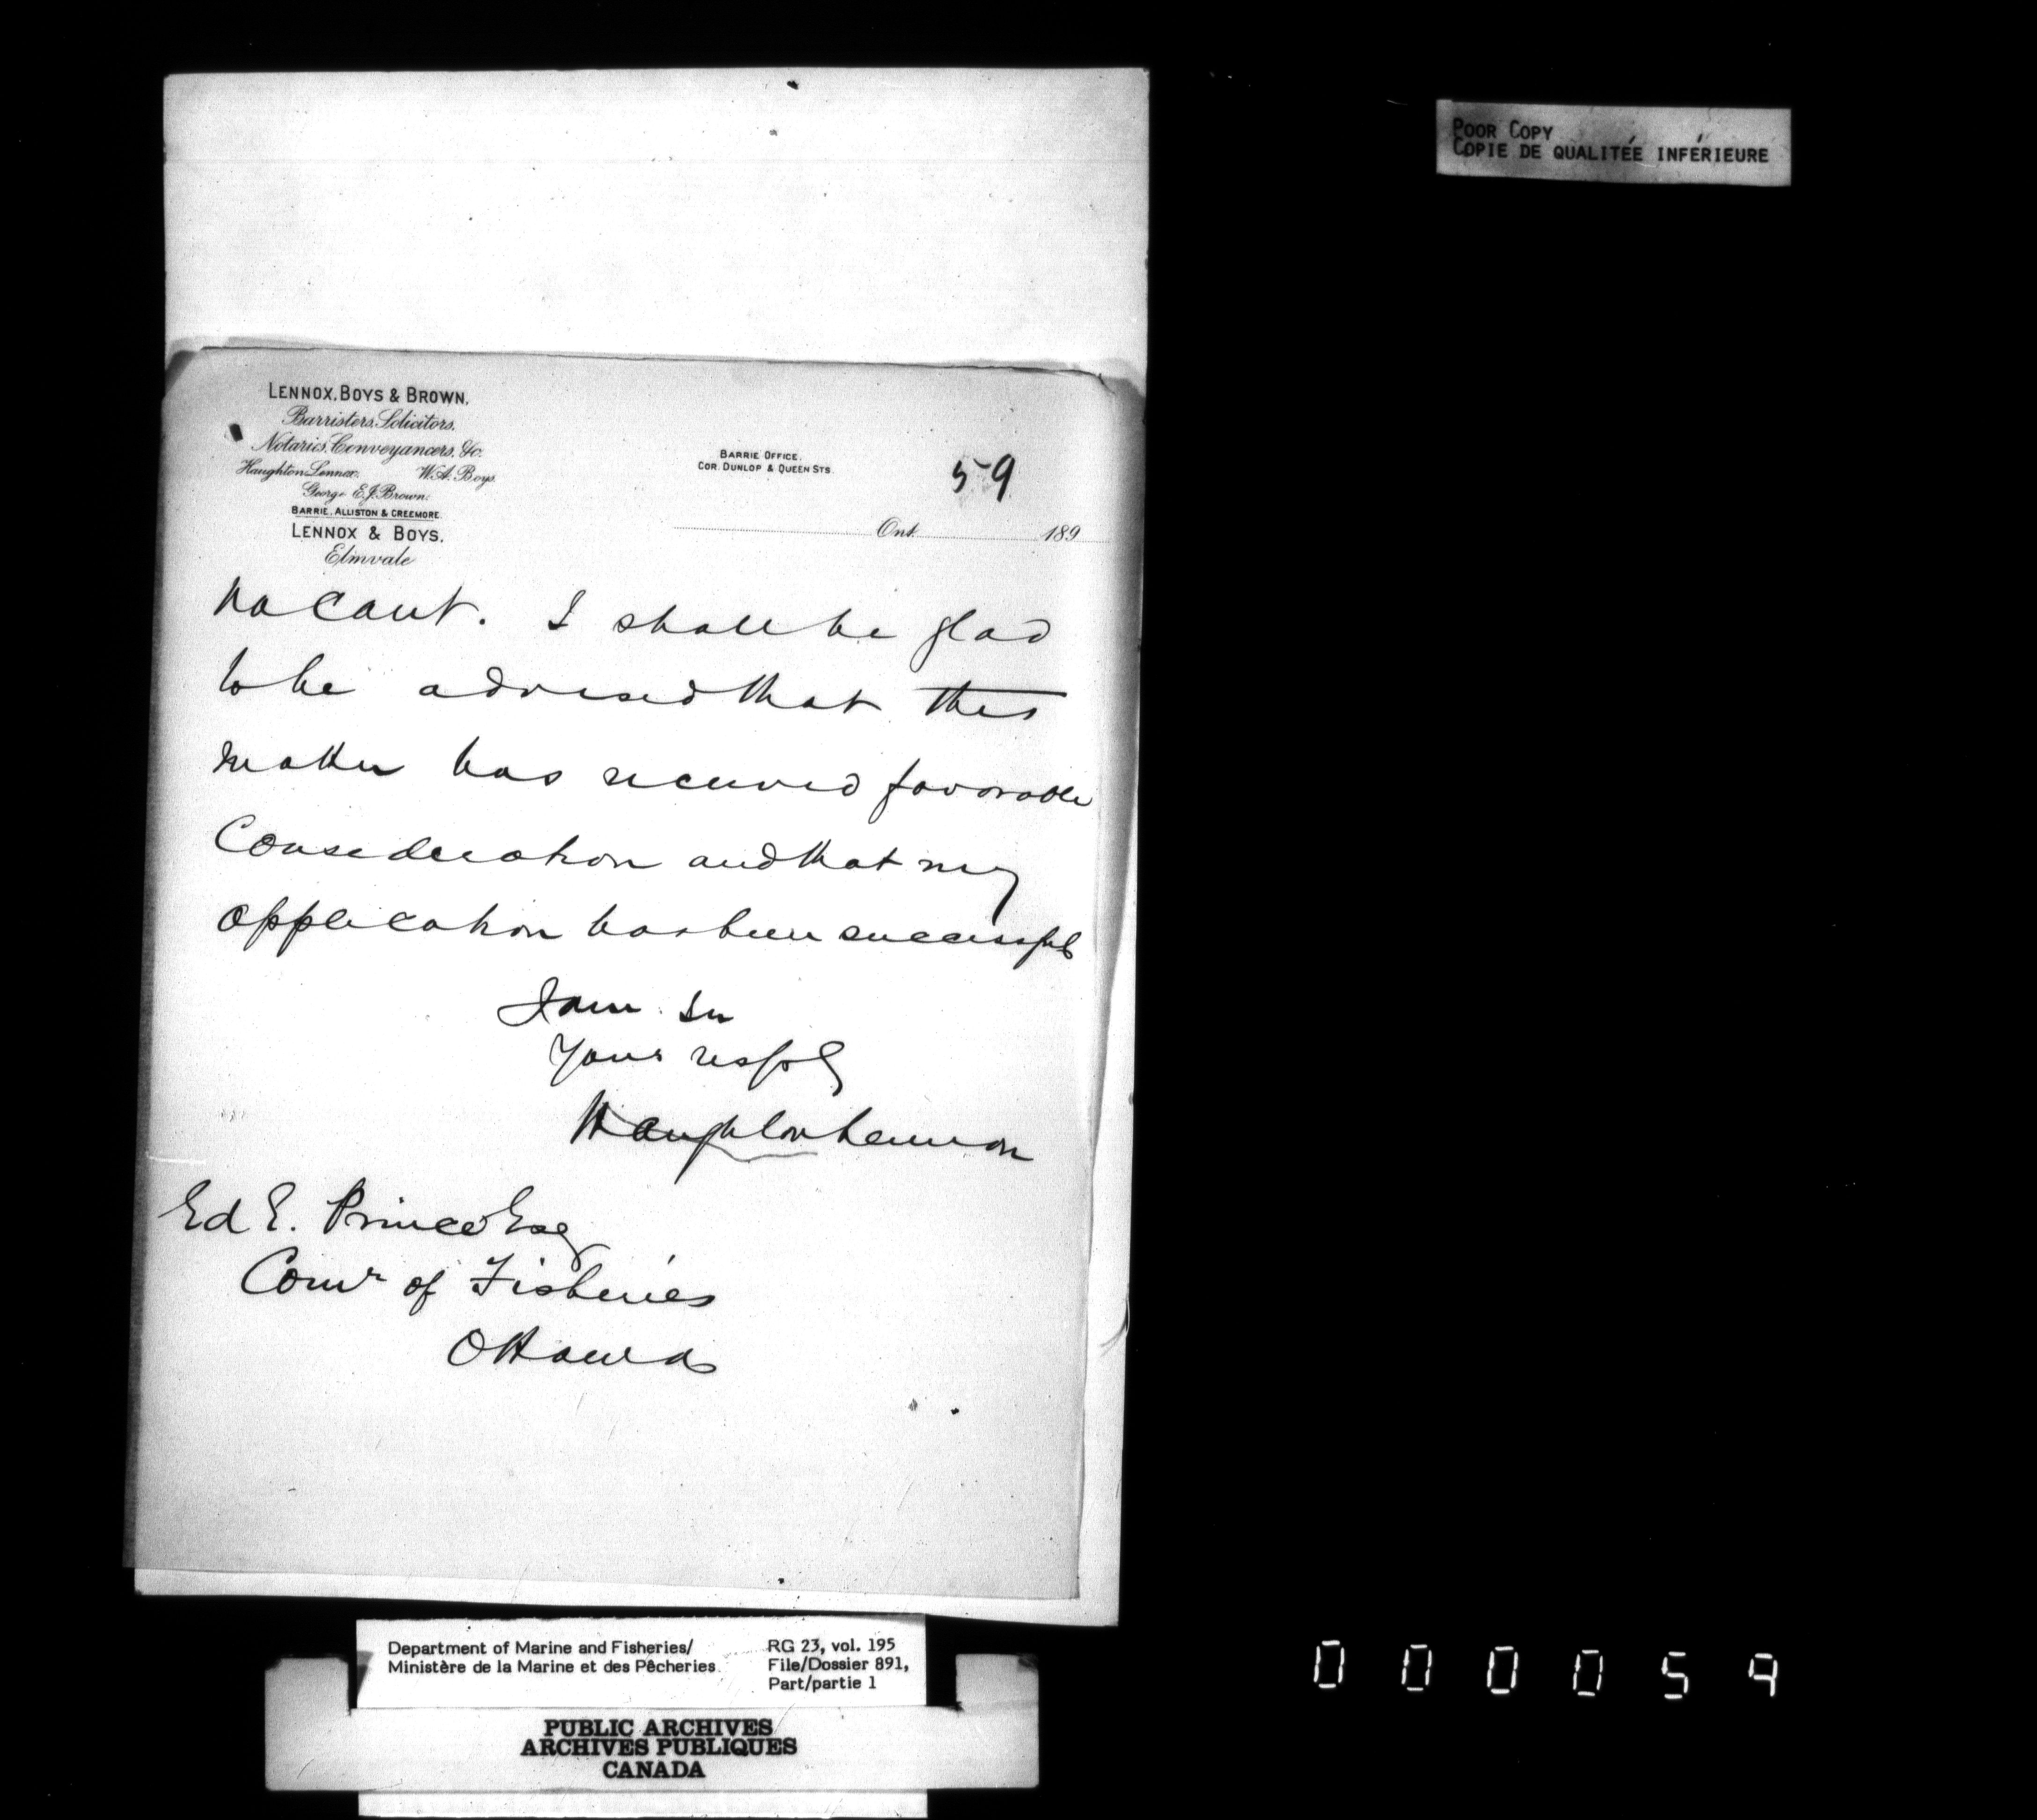 POOR COPY
COPIE DE QUALITÉE INFÉRIEURE
LENNOX, BOYS & BROWN,
Barristers, Solicitors,
Notaries, Conveyancers, &c.
Haughton Lennox. W. A. Boys.
George E. J. Brown.
BARRIE, ALLISTON & CREEMORE
LENNOX & BOYS,
Elmvale
BARRIE OFFICE,
COR. DUNLOP & QUEEN STS.
59
Ont. 189
vacant. I shall be glad
to be advised that this
matter has received favorable
Consideration and that my
application has been successful
I am Sir
Yours respy
Haughton Lennox
Ed E. Prince Esq
Comr of Fisheries
Ottawa
Department of Marine and Fisheries/
Ministère de la Marine et des Pêcheries
RG 23, vol. 195
File/Dossier 891,
Part/partie 1
PUBLIC ARCHIVES
ARCHIVES PUBLIQUES
CANADA
000059